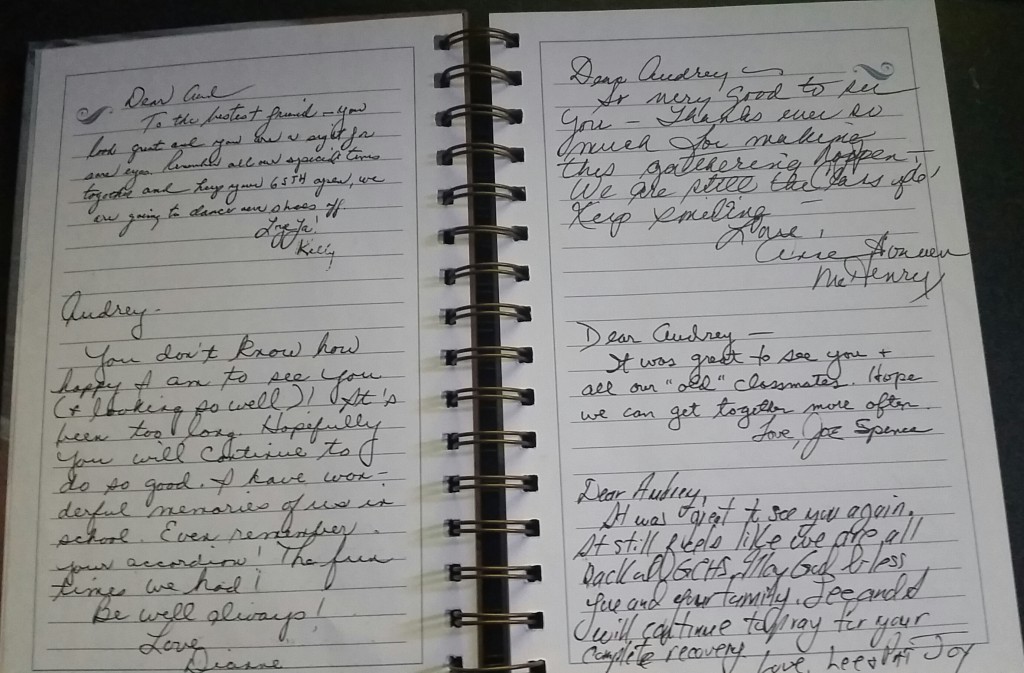 Dear Aud
To the bestest friend - you
look great and you are a sight for
sore eyes. Remember all our special times
together and - keep your 65TH open, we
are going to dance our shoes off
Love Ya!
Kelly
Audrey-
You don't know how
happy I am to see you
(+ looking so well)! It's
been too long. Hopefully
you will continue to
do so good. I have won-
derful memories of us in
school. Even remember
your accordion! The fun
times we had!
Be well always!
Love
Dianne
Dear Audrey -
So very good to see
you - Thanks ever so
much for making
this gathering happen -
We are still the class of
Keep smiling -
Love,
McHenry
Dear Audrey -
It was great to see you +
all our "old" classmates. Hope
we can get together more often.
Love, Joe Spence
Dear Audrey,
It was great to see you again.
It still feels like we are all
back at GCHS. May God bless
you and your family. Lee and I
will continue to pray for your
complete recovery.
Love, Lee + Pat Joy